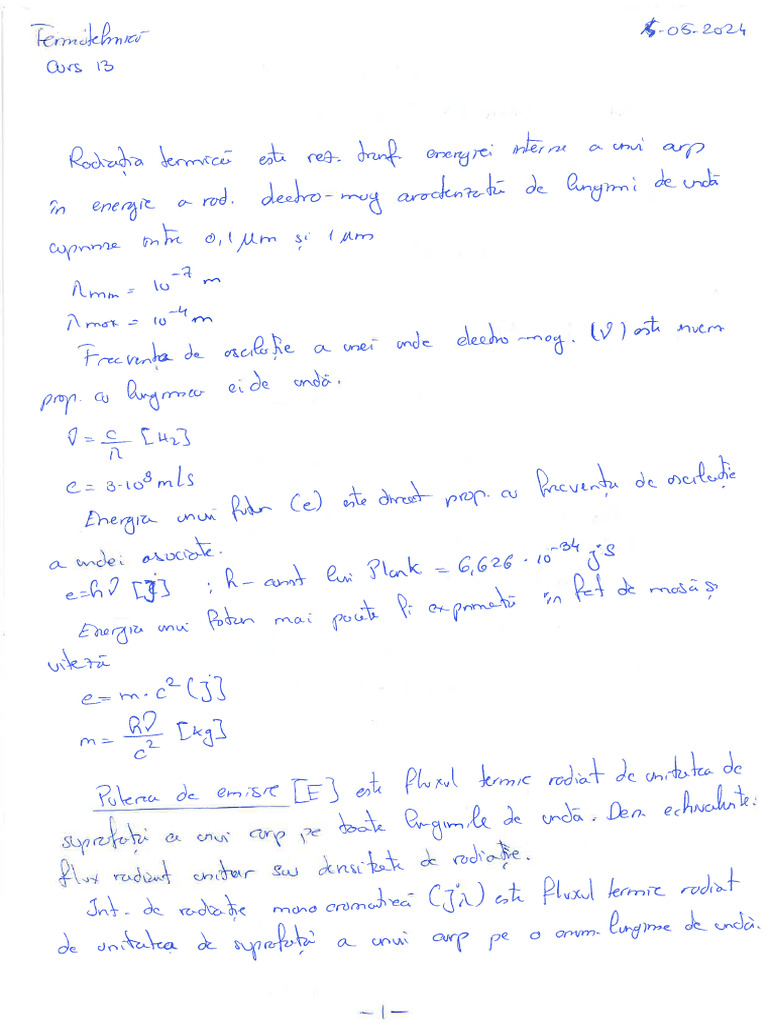 Termotehnică
-05-2024
Curs 13
Radiația termică este rez. transf. energiei interne a unui corp
în energie a rad. electro-mag caracterizată de lungimi de undă
cuprinse între 0,1 μm și 1 μm
λmin = 10⁻⁷ m
λmax = 10⁻⁴ m
Frecvența de oscilație a unei unde electro-mag. (ν) este invers
prop. cu lungimea ei de undă.
ν = c/λ [Hz]
c = 3·10⁸ m/s
Energia unui foton (e) este direct prop. cu frecvența de oscilație
a undei asociate.
e=hν [j] ; h - const lui Plank = 6,626 · 10⁻³⁴ js
Energia unui foton mai poate fi exprimată în fct de masă și
viteză
e = m·c² (j]
m = hν/c² [kg]
Puterea de emisie [E] este fluxul termic radiat de unitatea de
suprafață a unui corp pe toate lungimile de undă. Den echivalente:
flux radiant unitar sau densitate de radiație.
Int. de radiație monocromatică (jλ) este fluxul termic radiat
de unitatea de suprafață a unui corp pe o anum. lungime de undă.
-1-